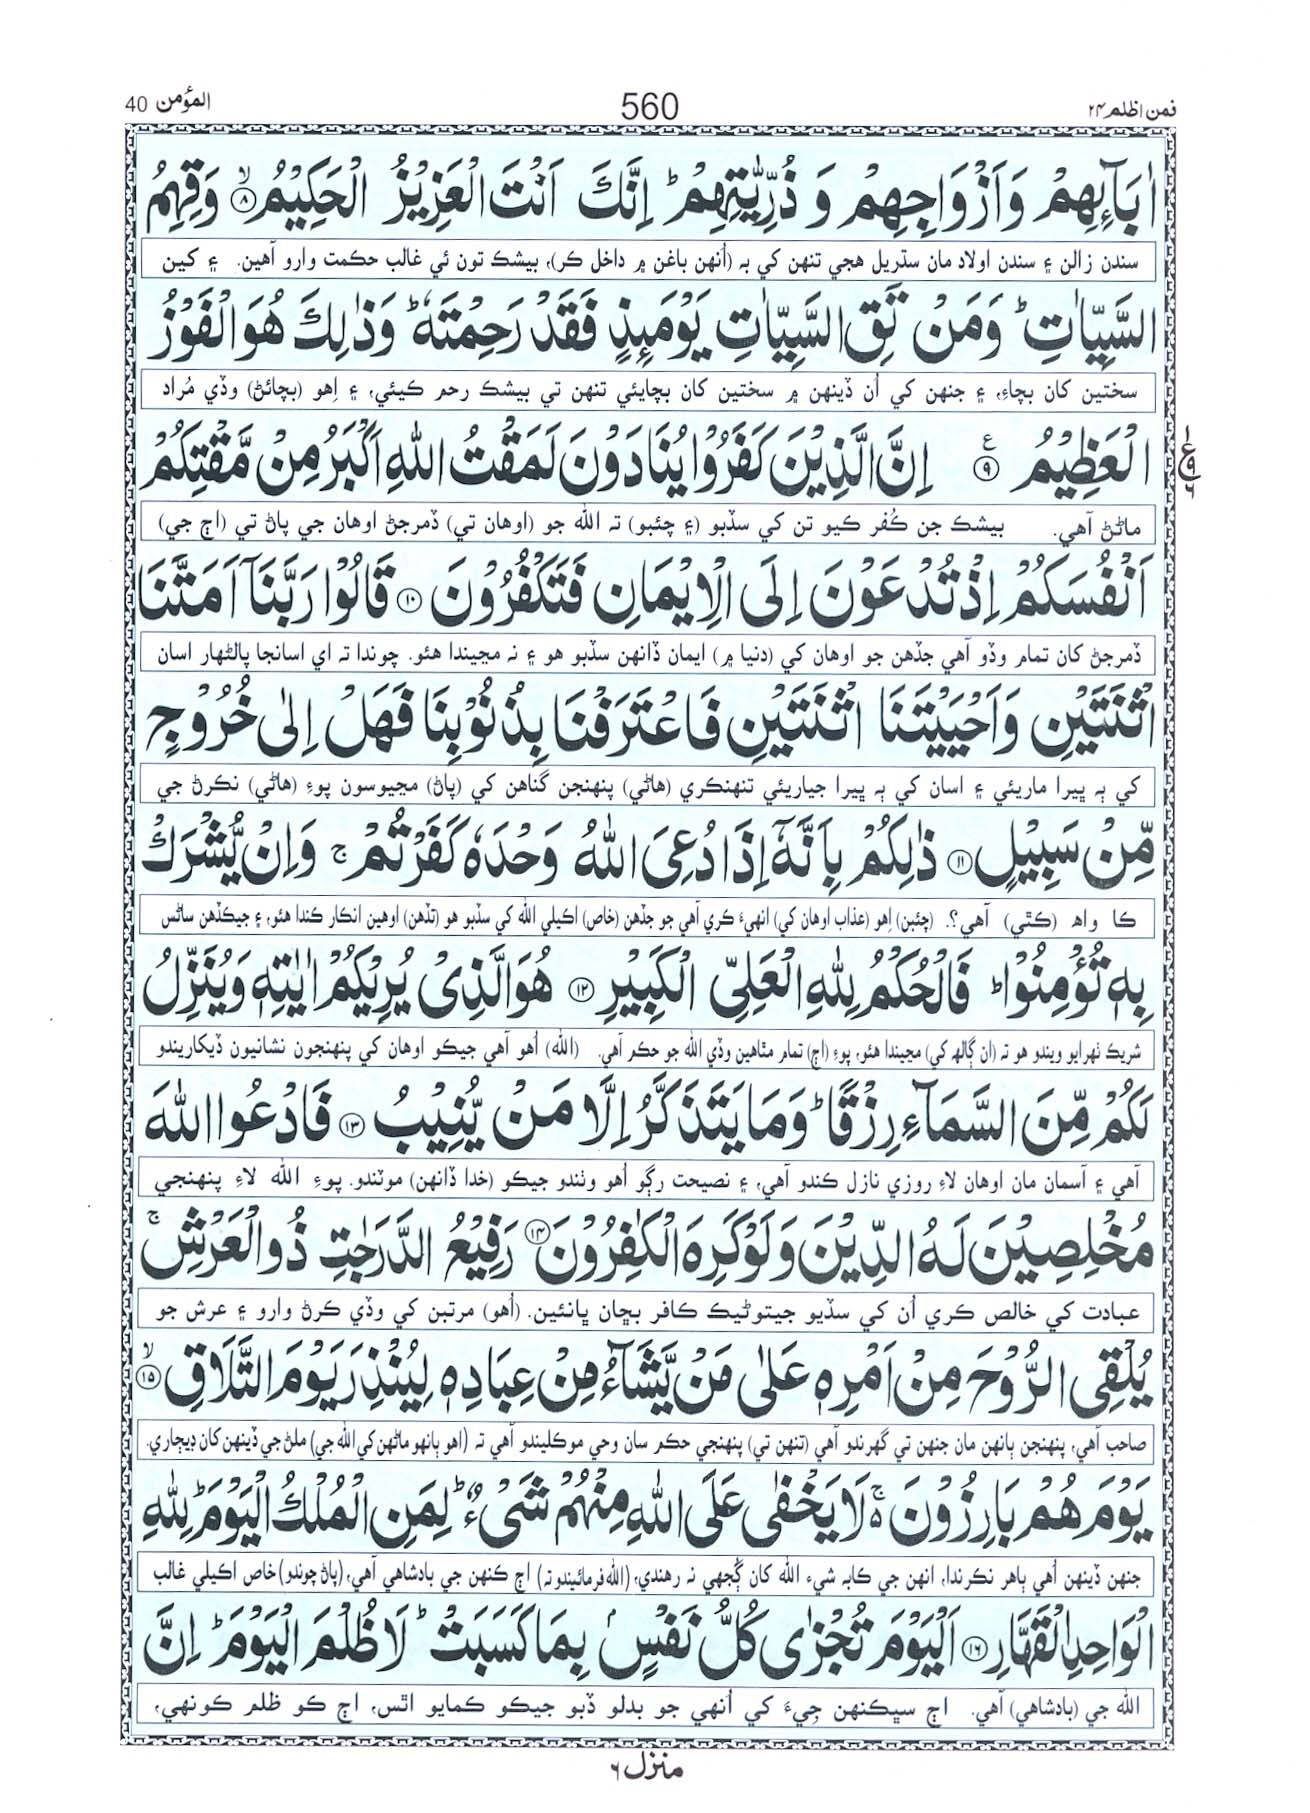 فمن اظلم ۲۴
560
المؤمن 40
اٰبَآئِهِمْ وَاَزْوَاجِهِمْ وَ ذُرِّيّٰتِهِمْ ؕ اِنَّكَ اَنْتَ الْعَزِيْزُ الْحَكِيْمُ ۙ ۸ وَقِهِمُ
سندن زالن ۽ سندن اولاد مان سڌريل هجي تنهن کي به (اُنهن باغن ۾ داخل ڪر)، بيشڪ تون ئي غالب حڪمت وارو آهين. ۽ کين
السَّيِّاٰتِ ؕ وَمَنْ تَقِ السَّيِّاٰتِ يَوْمَىِٕذٍ فَقَدْ رَحِمْتَهٗ ؕ وَذٰلِكَ هُوَ الْفَوْزُ
سختين کان بچاءِ، ۽ جنهن کي اُن ڏينهن ۾ سختين کان بچايئي تنهن تي بيشڪ رحم ڪيئي، ۽ اِهو (بچائڻ) وڏي مُراد
الْعَظِيْمُ ۹ ع اِنَّ الَّذِيْنَ كَفَرُوْا يُنَادَوْنَ لَمَقْتُ اللّٰهِ اَكْبَرُ مِنْ مَّقْتِكُمْ
ماڻڻ آهي. بيشڪ جن ڪُفر ڪيو تن کي سڏبو (۽ چئبو) ته الله جو (اوهان تي) ڏمرجڻ اوهان جي پاڻ تي (اڄ جي)
اَنْفُسَكُمْ اِذْ تُدْعَوْنَ اِلَى الْاِيْمَانِ فَتَكْفُرُوْنَ ۱۰ قَالُوْا رَبَّنَآ اَمَتَّنَا
ڏمرجڻ کان تمام وڏو آهي جڏهن جو اوهان کي (دنيا ۾) ايمان ڏانهن سڏبو هو ۽ نه مڃيندا هئو. چوندا ته اي اسانجا پالڻهار اسان
اثْنَتَيْنِ وَاَحْيَيْتَنَا اثْنَتَيْنِ فَاعْتَرَفْنَا بِذُنُوْبِنَا فَهَلْ اِلٰى خُرُوْجٍ
کي ٻه ڀيرا ماريئي ۽ اسان کي ٻه ڀيرا جياريئي تنهنڪري (هاڻي) پنهنجن گناهن کي (پاڻ) مڃيوسون پوءِ (هاڻي) نڪرڻ جي
مِّنْ سَبِيْلٍ ۱۱ ذٰلِكُمْ بِاَنَّهٗٓ اِذَا دُعِيَ اللّٰهُ وَحْدَهٗ كَفَرْتُمْ ۚ وَاِنْ يُّشْرَكْ
ڪا واهه (ڪٿي) آهي؟. (چئبن) اِهو (عذاب اوهان کي) انهيءَ ڪري آهي جو جڏهن (خاص) اڪيلي الله کي سڏبو هو (تڏهن) اوهين انڪار ڪندا هئو، ۽ جيڪڏهن ساڻس
بِهٖ تُؤْمِنُوْا ؕ فَالْحُكْمُ لِلّٰهِ الْعَلِيِّ الْكَبِيْرِ ۱۲ هُوَ الَّذِيْ يُرِيْكُمْ اٰيٰتِهٖ وَيُنَزِّلُ
شريڪ ٺهرايو ويندو هو ته (ان ڳالھ کي) مڃيندا هئو، پوءِ (اڄ) تمام مٿاهين وڏي الله جو حڪم آهي. (الله) اُهو آهي جيڪو اوهان کي پنهنجون نشانيون ڏيکاريندو
لَكُمْ مِّنَ السَّمَآءِ رِزْقًا ؕ وَمَا يَتَذَكَّرُ اِلَّا مَنْ يُّنِيْبُ ۱۳ فَادْعُوا اللّٰهَ
آهي ۽ آسمان مان اوهان لاءِ روزي نازل ڪندو آهي، ۽ نصيحت رڳو اُهو وٺندو جيڪو (خدا ڏانهن) موٽندو. پوءِ الله لاءِ پنهنجي
مُخْلِصِيْنَ لَهُ الدِّيْنَ وَلَوْ كَرِهَ الْكٰفِرُوْنَ ۱۴ رَفِيْعُ الدَّرَجٰتِ ذُو الْعَرْشِ ۚ
عبادت کي خالص ڪري اُن کي سڏيو جيتوڻيڪ ڪافر بڇان ڀانئين. (اُهو) مرتبن کي وڏي ڪرڻ وارو ۽ عرش جو
يُلْقِي الرُّوْحَ مِنْ اَمْرِهٖ عَلٰى مَنْ يَّشَآءُ مِنْ عِبَادِهٖ لِيُنْذِرَ يَوْمَ التَّلَاقِ ۙ ۱۵
صاحب آهي، پنهنجن ٻانهن مان جنهن تي گهرندو آهي (تنهن تي) پنهنجي حڪم سان وحي موڪليندو آهي ته (اهو ٻانهو ماڻهن کي الله جي) ملڻ جي ڏينهن کان ڊيڄاري.
يَوْمَ هُمْ بَارِزُوْنَ ۚ ۵ لَا يَخْفٰى عَلَى اللّٰهِ مِنْهُمْ شَيْءٌ ؕ لِمَنِ الْمُلْكُ الْيَوْمَ ؕ لِلّٰهِ
جنهن ڏينهن اُهي ٻاهر نڪرندا، انهن جي ڪابه شيءِ الله کان ڳُجهي نه رهندي، (الله فرمائيندو ته) اڄ ڪنهن جي بادشاهي آهي، (پاڻ چوندو) خاص اڪيلي غالب
الْوَاحِدِ الْقَهَّارِ ۱۶ اَلْيَوْمَ تُجْزٰى كُلُّ نَفْسٍۭ بِمَا كَسَبَتْ ؕ لَا ظُلْمَ الْيَوْمَ ؕ اِنَّ
الله جي (بادشاهي) آهي. اڄ سڀڪنهن جِيءَ کي اُنهي جو بدلو ڏبو جيڪو ڪمايو اٿس، اڄ ڪو ظلم ڪونهي،
منزل ۶